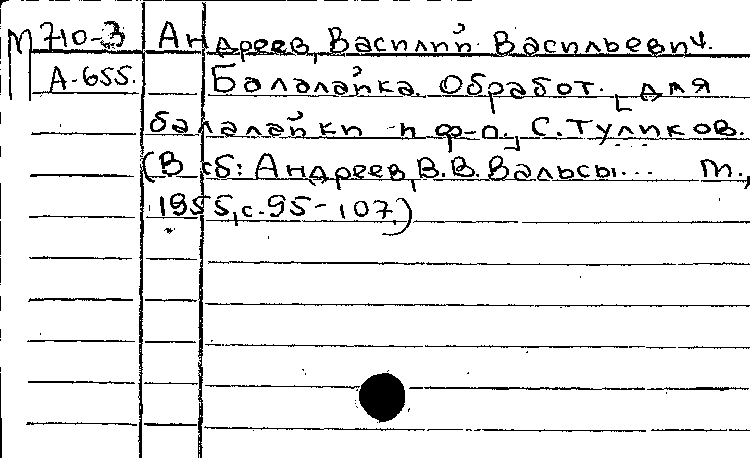 М 710-3 Андреев, Василий Васильевич.
А-655. Балалайка. Обработ. [для
балалайки и ф-п.], С. Туликов.
(В сб: Андреев, В.В. Вальсы... М.,
1955, с. 95-107.)